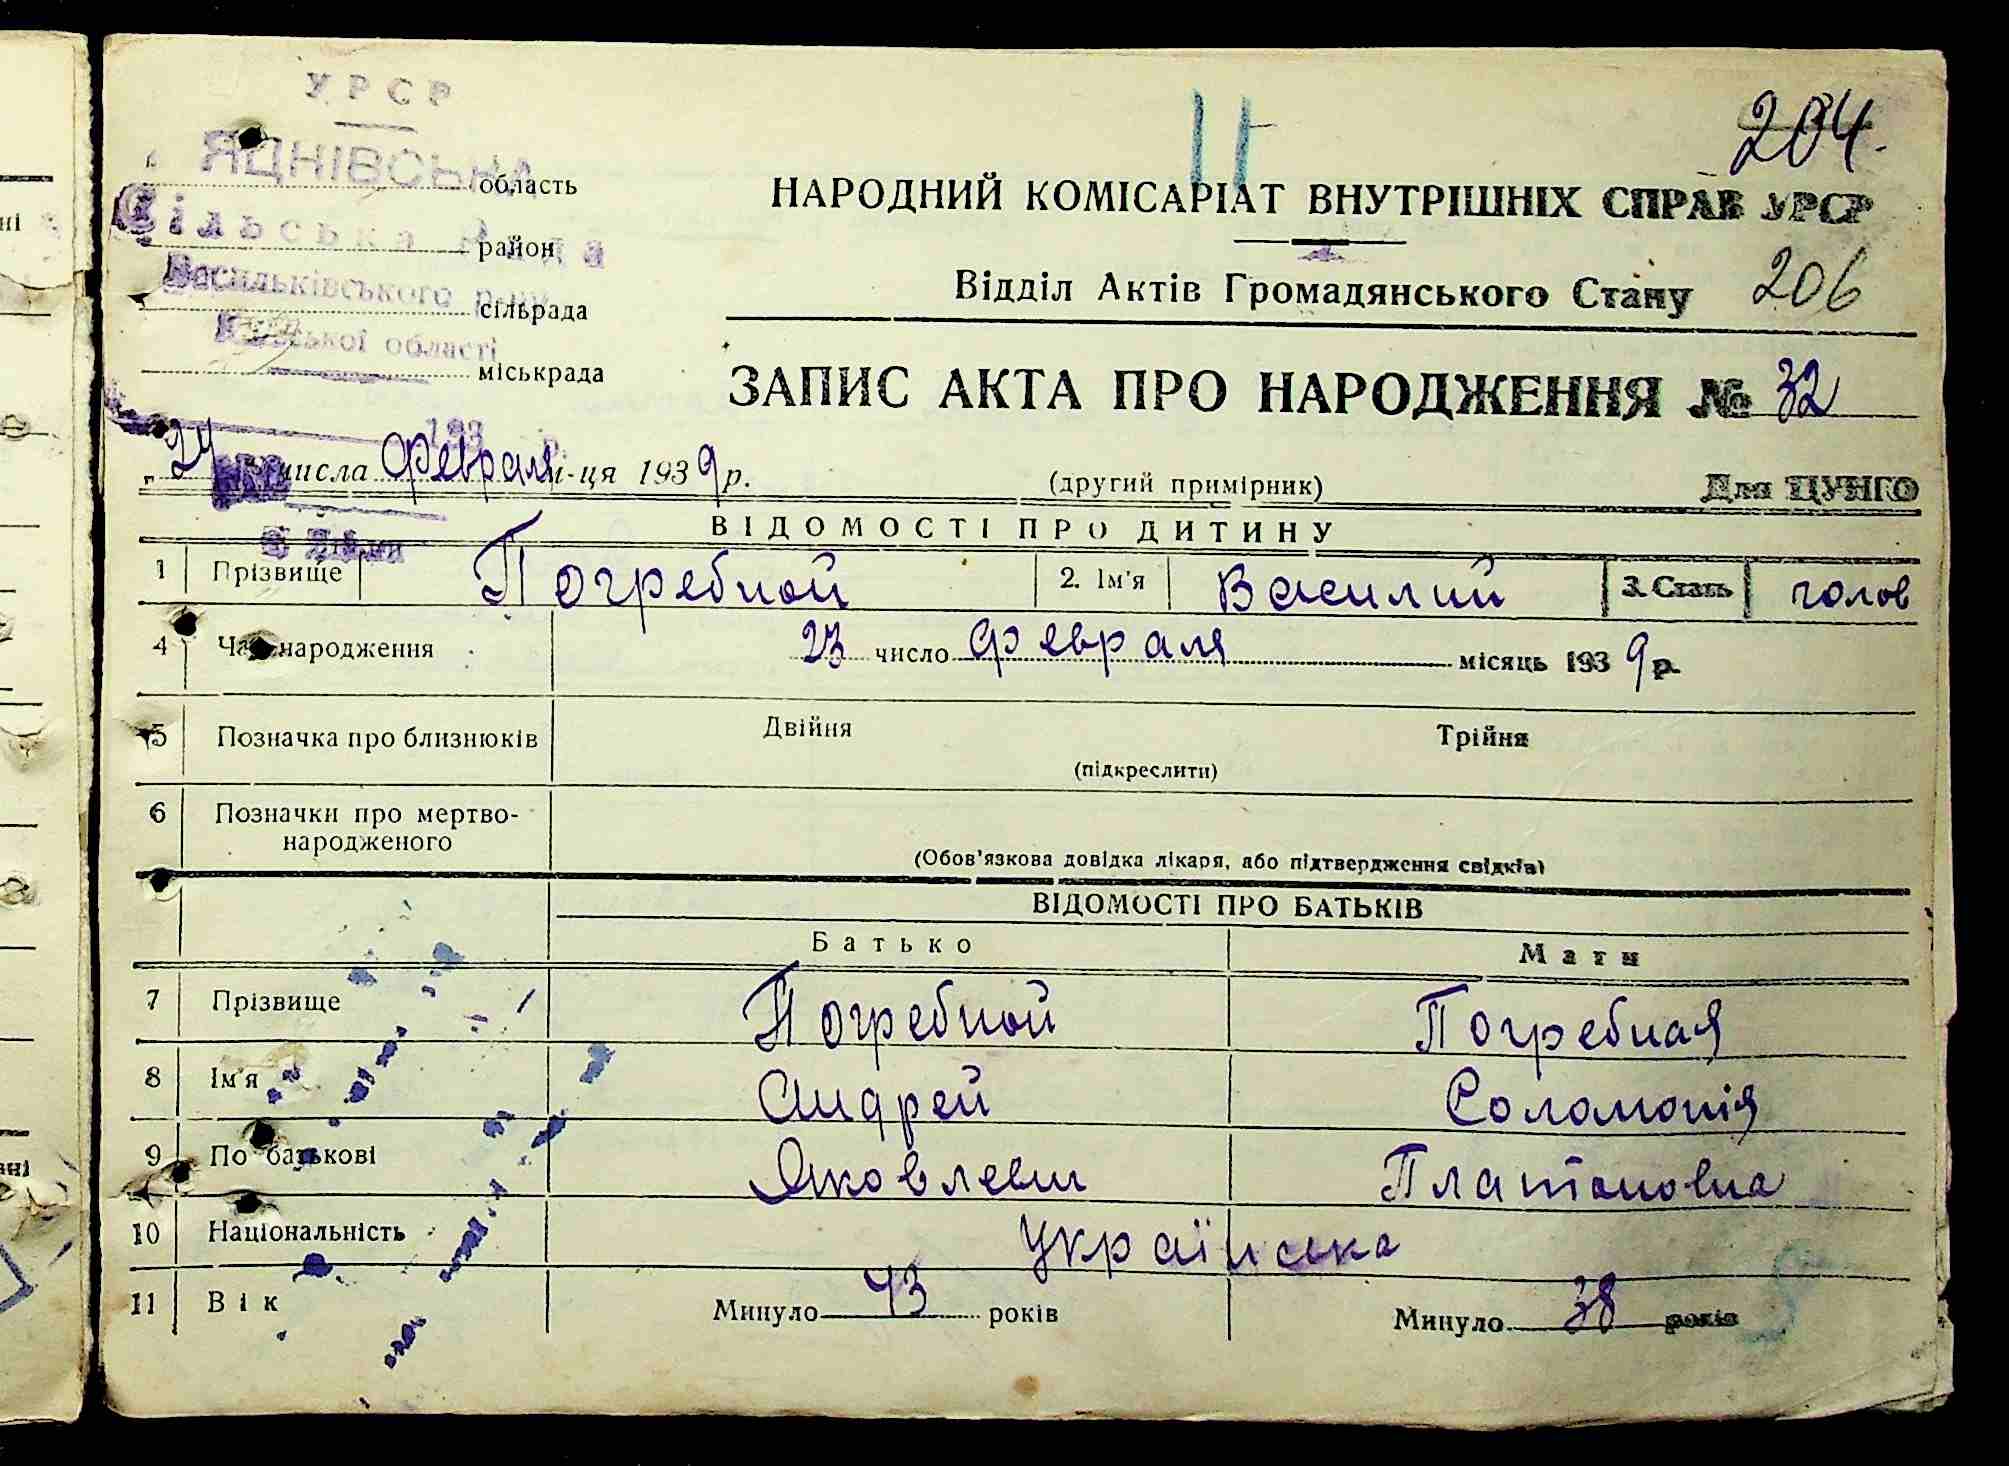 УРСР
ЯЦНІВСЬКА
область
Сільська Рада
район
Васильківського р-ну
сільрада
Київської області
міськрада
11
204.
НАРОДНИЙ КОМІСАРІАТ ВНУТРІШНІХ СПРАВ УРСР
Відділ Актів Громадянського Стану 206
ЗАПИС АКТА ПРО НАРОДЖЕННЯ № 32
193 р.
"24 числа Февраля м-ця 1939 р. (другий примірник) Для ЦУНГО
ВІДОМОСТІ ПРО ДИТИНУ
1 Прізвище Погребной 2. Ім'я Василий 3. Стать голов
4 Час народження 23 число Февраля місяць 1939 р.
5 Позначка про близнюків Двійня Трійня
(підкреслити)
6 Позначки про мертво-
народженого
(Обов'язкова довідка лікаря, або підтвердження свідків)
ВІДОМОСТІ ПРО БАТЬКІВ
Батько Мати
7 Прізвище Погребной Погребная
8 Ім'я Андрей Соломонія
9 По батькові Яковлевич Платоновна
10 Національність Українська
11 Вік Минуло 43 років Минуло 38 років